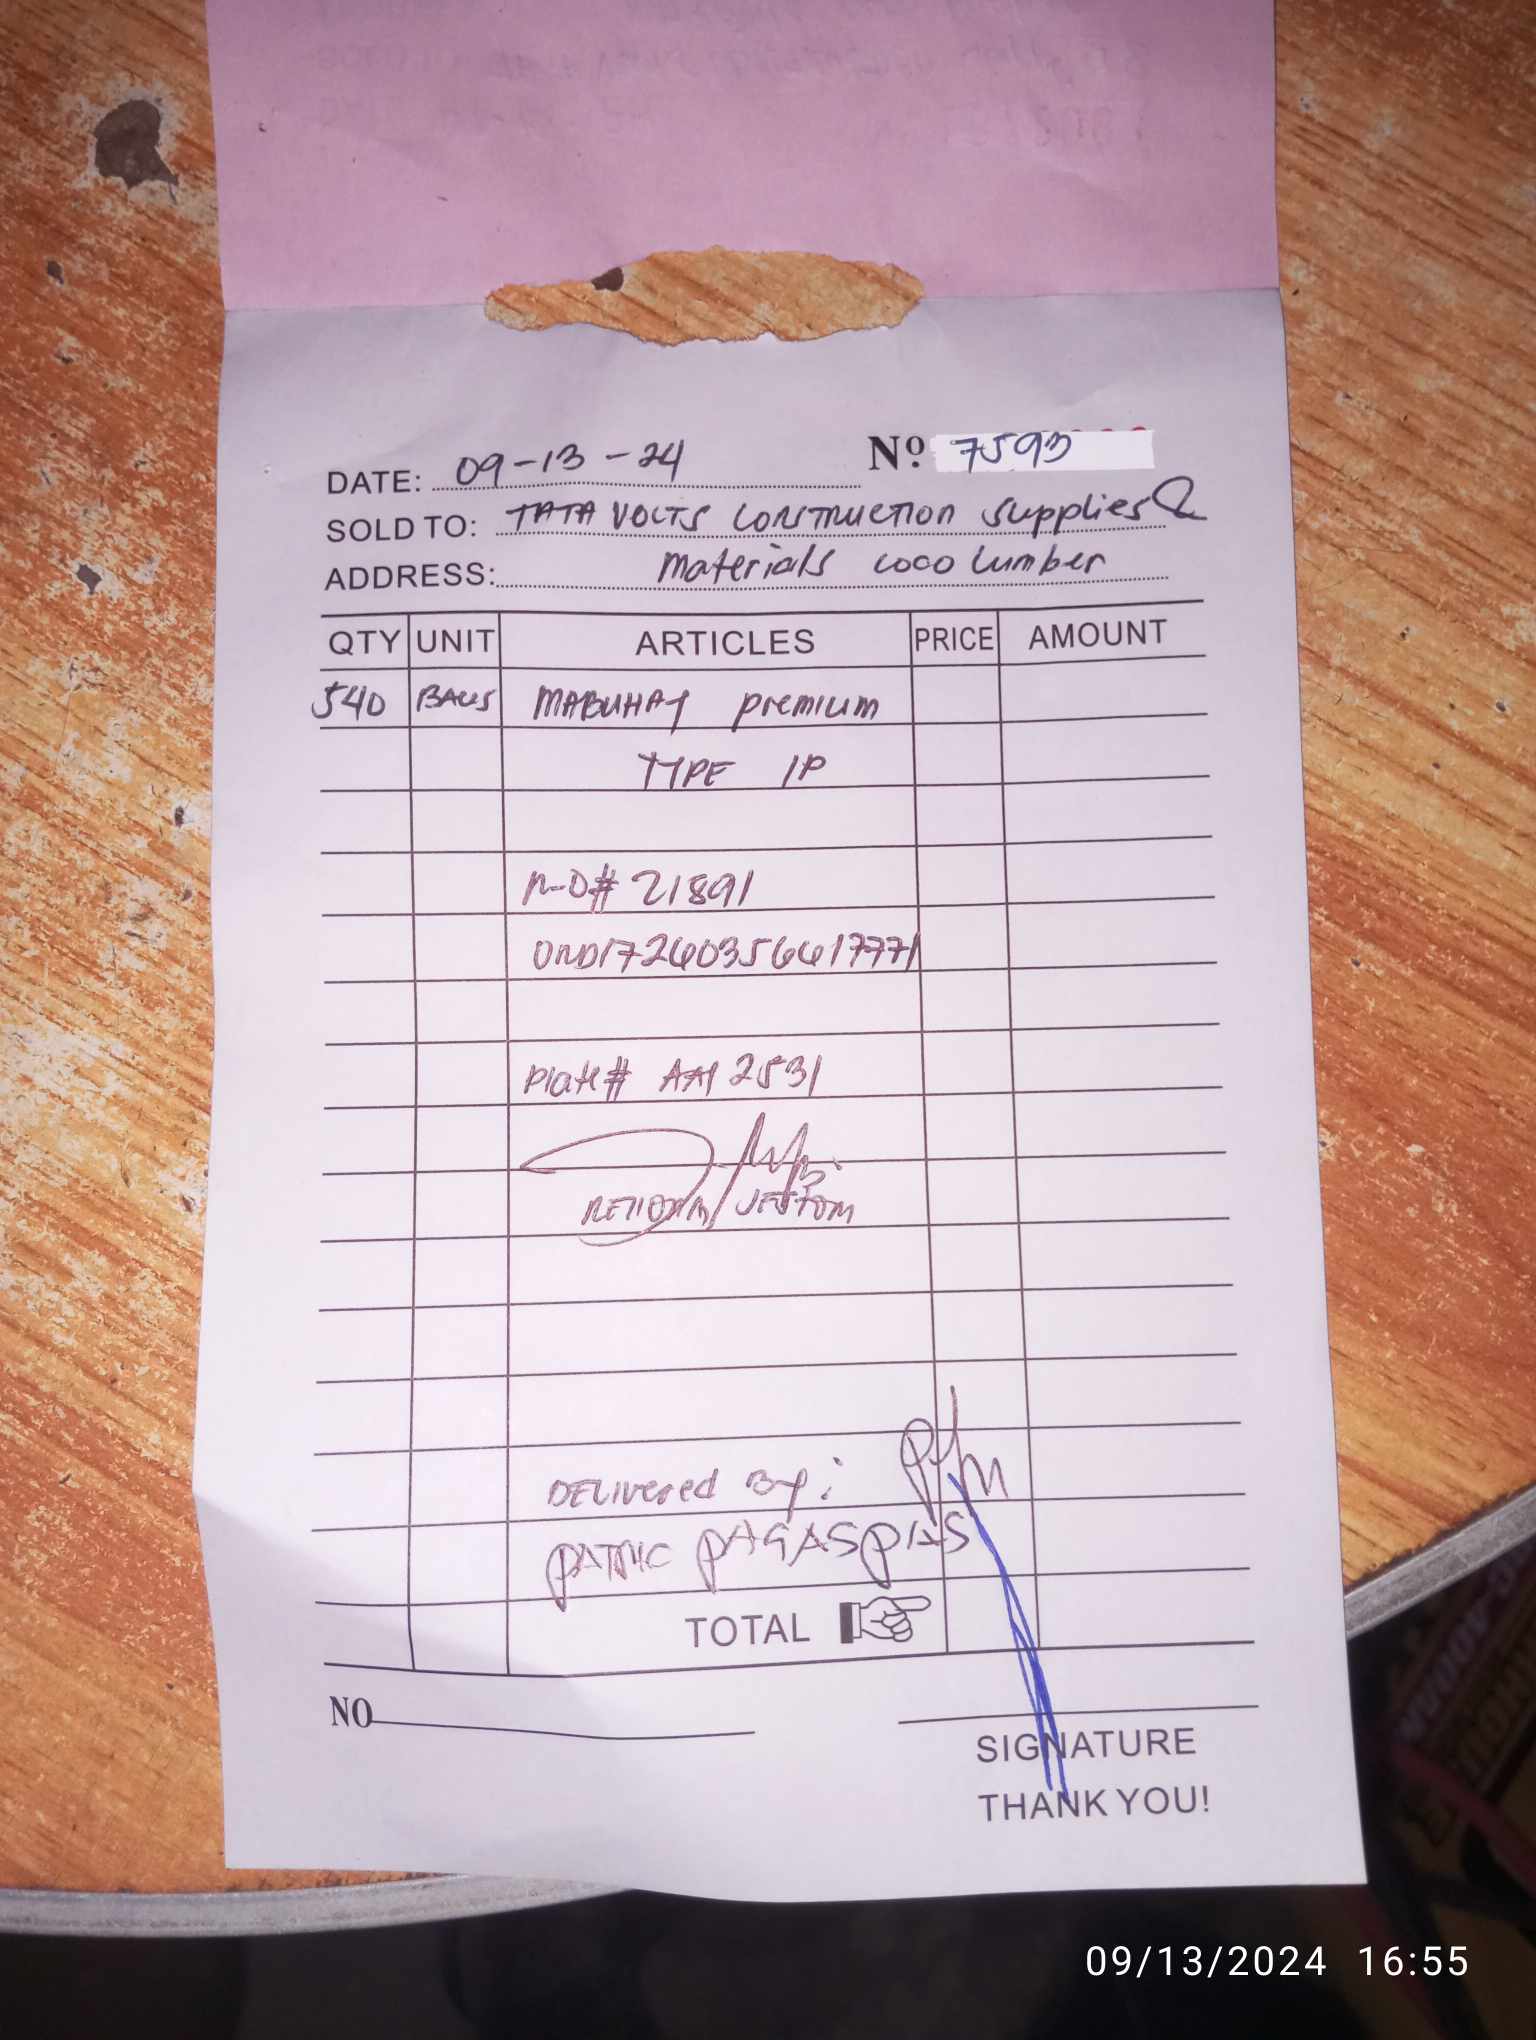 DATE: 09-13-24 Nº 7593
SOLD TO: TATA VOLTS CONSTRUCTION Supplies &
ADDRESS: Materials coco Lumber
QTY UNIT ARTICLES PRICE AMOUNT
540 BAGS MABUHAY premium
TYPE 1P
21891
Plate# AAI 2531
DELIVERED By:
PATRIC PAGASPIAS
TOTAL
NO
SIGNATURE
THANK YOU!
09/13/2024 16:55